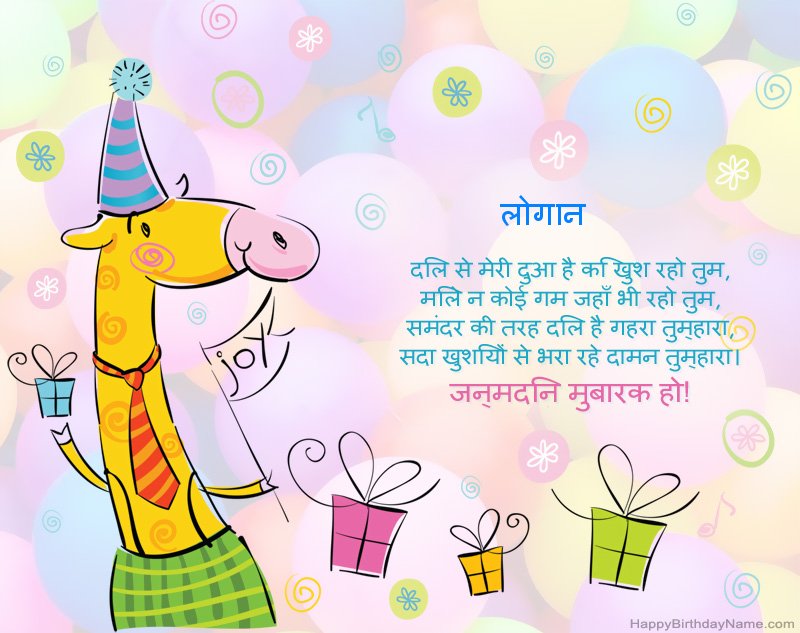 लोगान
दलि से मेरी दुआ है कि खुश रहो तुम,
मलिे न कोई गम जहाँ भी रहो तुम,
समंदर की तरह दलि है गहरा तुम्हारा,
सदा खुशयिों से भरा रहे दामन तुम्हारा।
जन्मदनि मुबारक हो!
joy
HappyBirthdayName.com